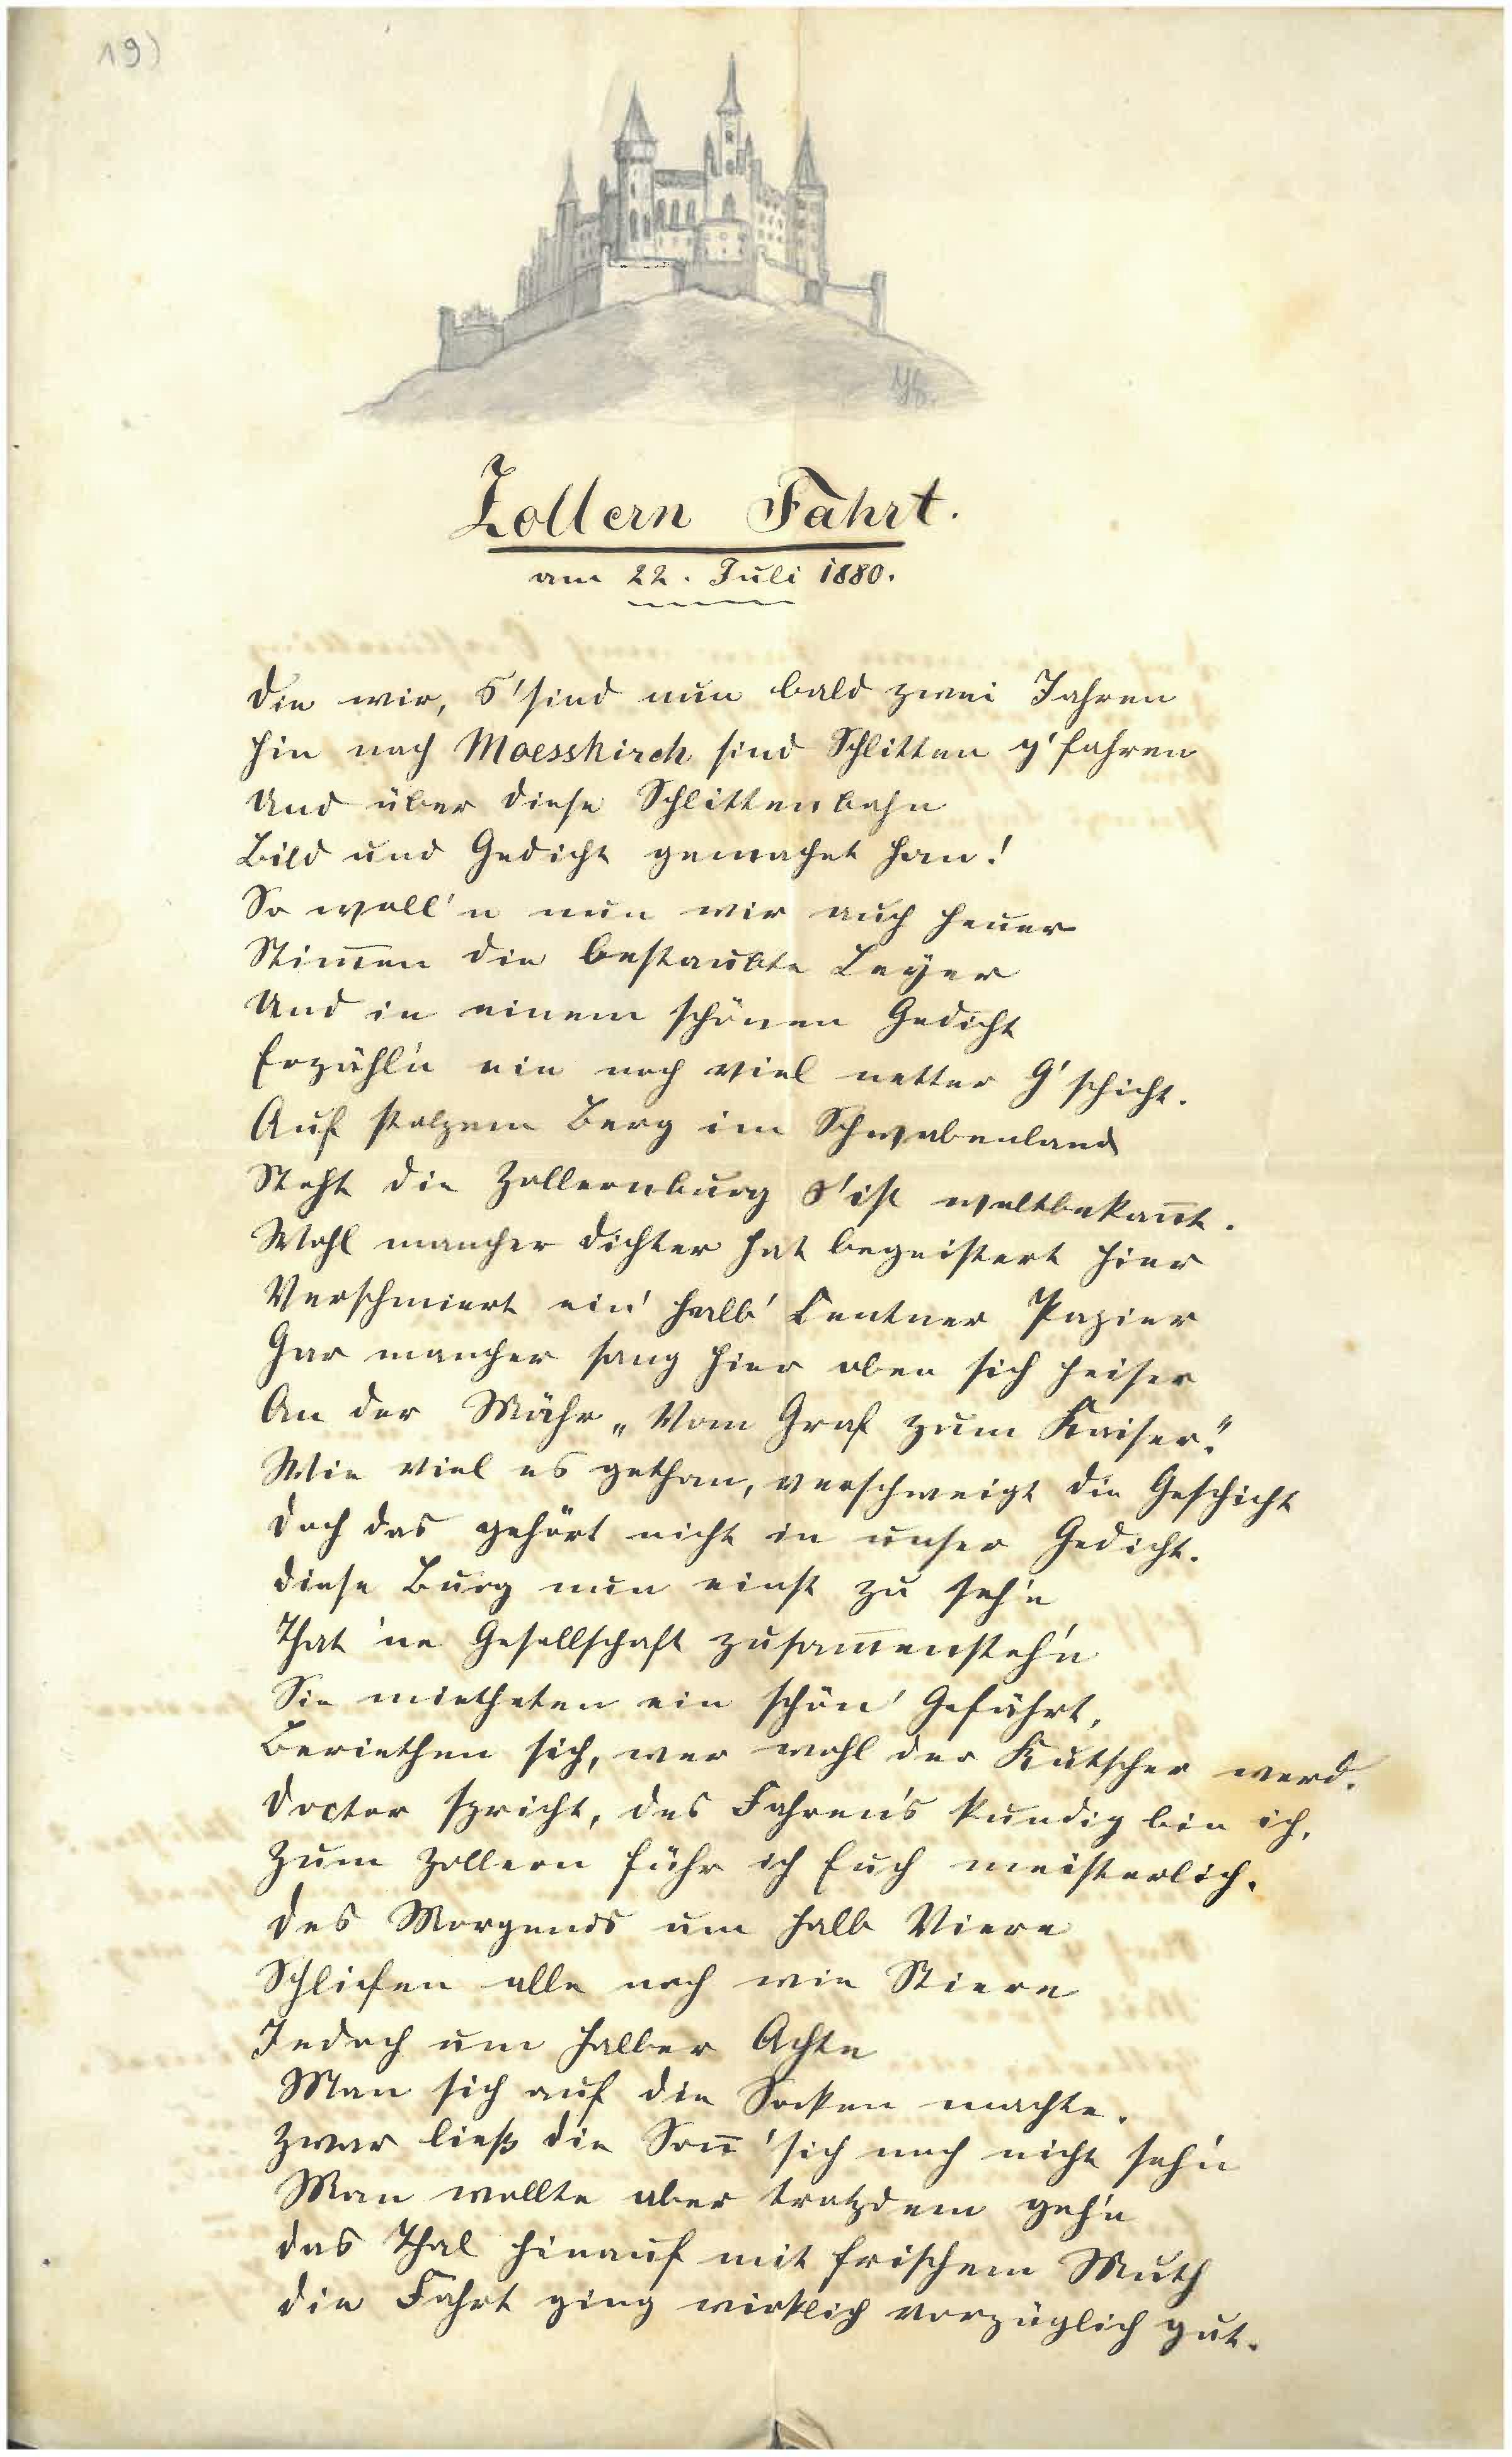 19)
Zollern Fahrt.
am 22. Juli 1880.
Die wir, S'sind nun bald zwei Jahren
Hin nach Moesskirch sind Schlitten g'fahren
Und über diese Schlittenbahn
Bild und Gedicht gemachet han!
So woll'n nun wir auch heuer
Stim̄en die bestaubte Leÿer
Und in einem schönen Gedicht
Erzähl'n ein noch viel netter G'schicht.
Auf stolzem Berg im Schwabenland
Steht die Zollernburg S'ist weltbekan̄t.
Wohl mancher Dichter hat begeistert hier
Verschmiert ein' halb' Centner Papier
Gar mancher sang hier oben sich heiser
An der Mähr „Vom Graf zum Kaiser."
Wie viel es gethan, verschweigt die Geschicht
Doch das gehört nicht in unser Gedicht.
Diese Burg nun einst zu seh'n
That 'ne Gesellschaft zusam̄ensteh'n
Sie mietheten ein schön' Gefährt,
Beriethen sich, wer wohl der Kutscher werd.
Doctor spricht, des Fahren's kundig bin ich,
Zum Zollern führ ich Euch meisterlich.
Des Morgends um halb Viere
Schliefen alle noch wie Stiere
Jedoch um halber Achte
Man sich auf die Socken machte.
Zwar ließ die Son̄' sich noch nicht seh'n
Man wollte aber trotzdem geh'n
Das Thal hinauf mit frischem Muth
Die Fahrt ging wirklich vorzüglich gut.